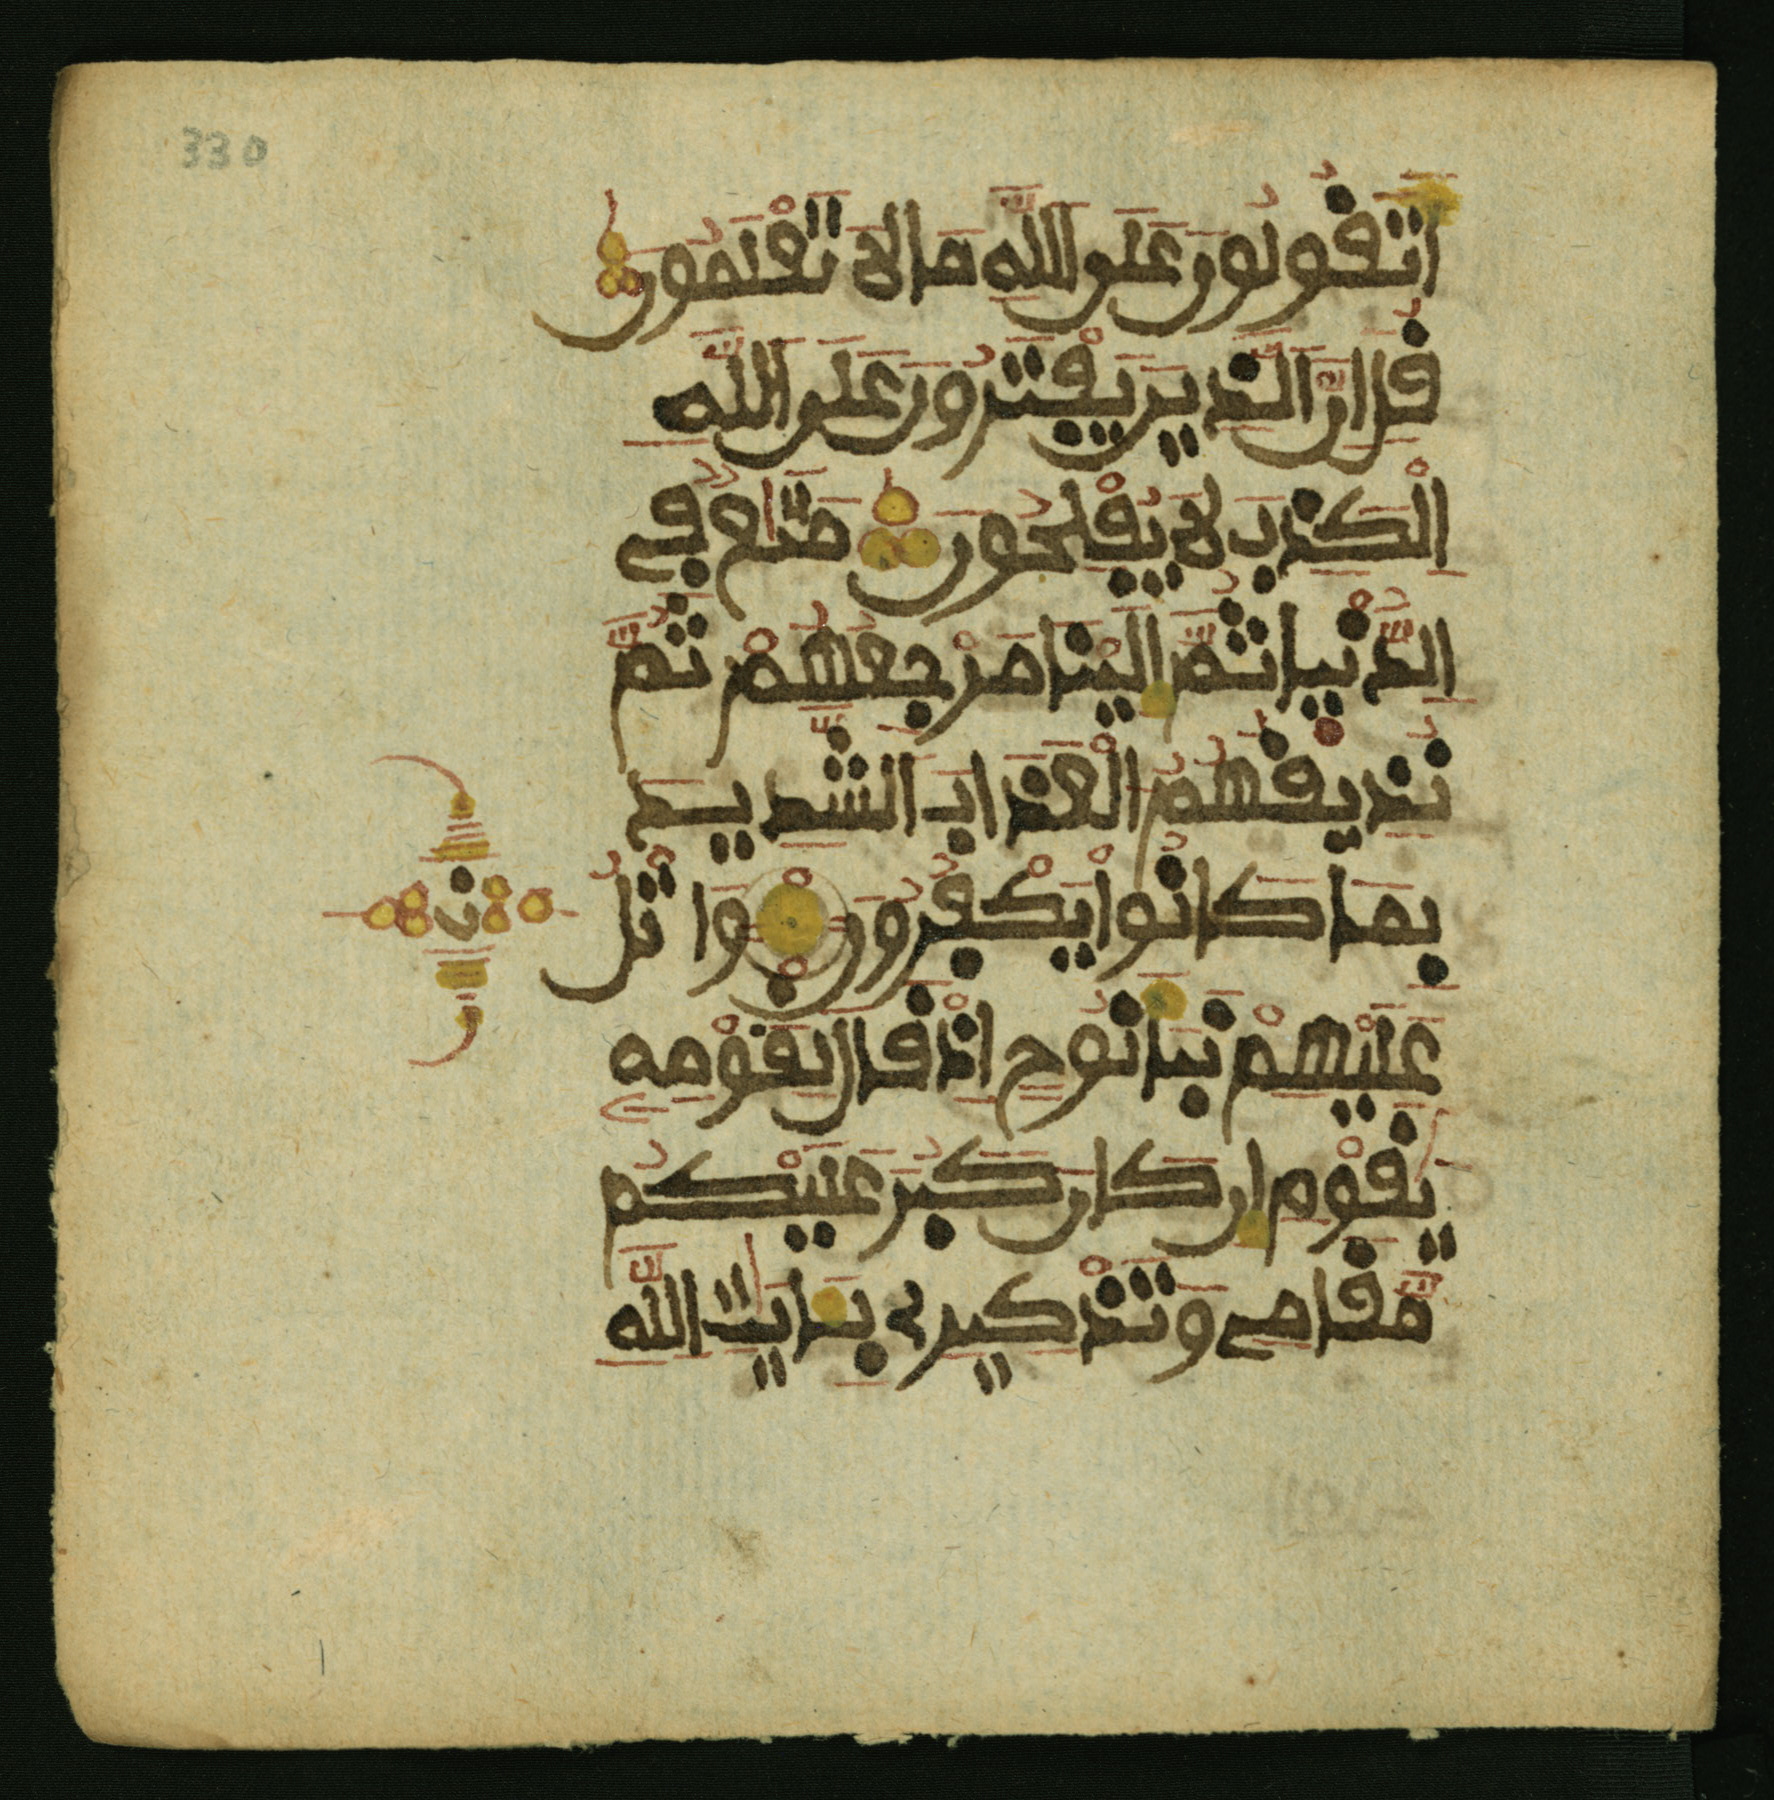 330
اَتَقُولُونَ عَلَى اَللَّهِ مَا لَا تَعْلَمُونَ
قُلِ اِنَّ اَلذِينَ يَفْتَرُونَ عَلَى اَللَّهِ
اِلْكَذِبَ لَا يُفْلِحُونَ مَتَٰعٌ فِے
اِلدُّنْيَا ثُمَّ إِلَيْنَا مَرْجِعُهُمْ ثُمَّ
نُذِيقُهُمُ اُلْعَذَابَ اَلشَّدِيدَ
بِمَا كَانُوا يَكْفُرُونَ وَاتْلُ
ن
عَلَيْهِمْ نَبَأَ نُوحٍ اِذْ قَالَ لِقَوْمِهِ
يَٰقَوْمِ إِن كَانَ كَبُرَ عَلَيْكُم
مَّقَامِے وَتَذْكِيرِے بِـَٔايَٰتِ اِللَّهِ